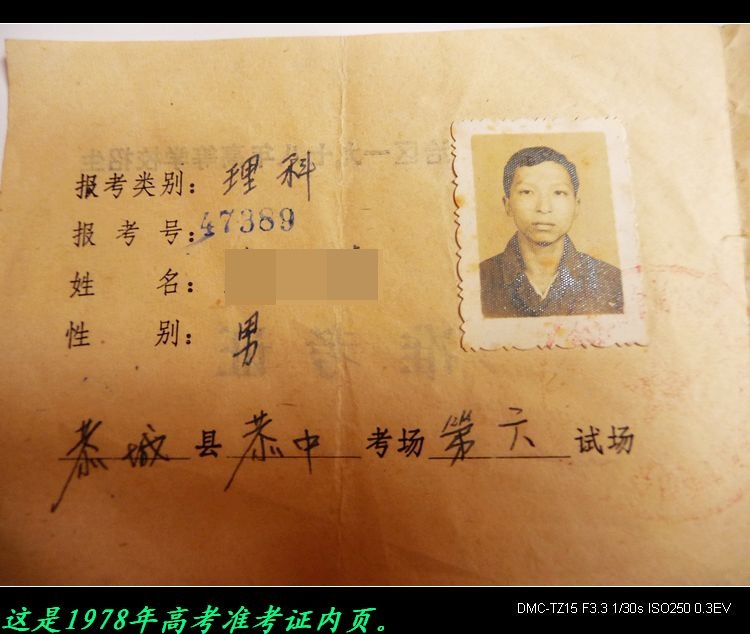 报考类别：理科
报考号：47389
姓名：
性别：男
恭城县恭中考场第六试场
这是1978年高考准考证内页。
DMC-TZ15 F3.3 1/30s ISO250 0.3EV